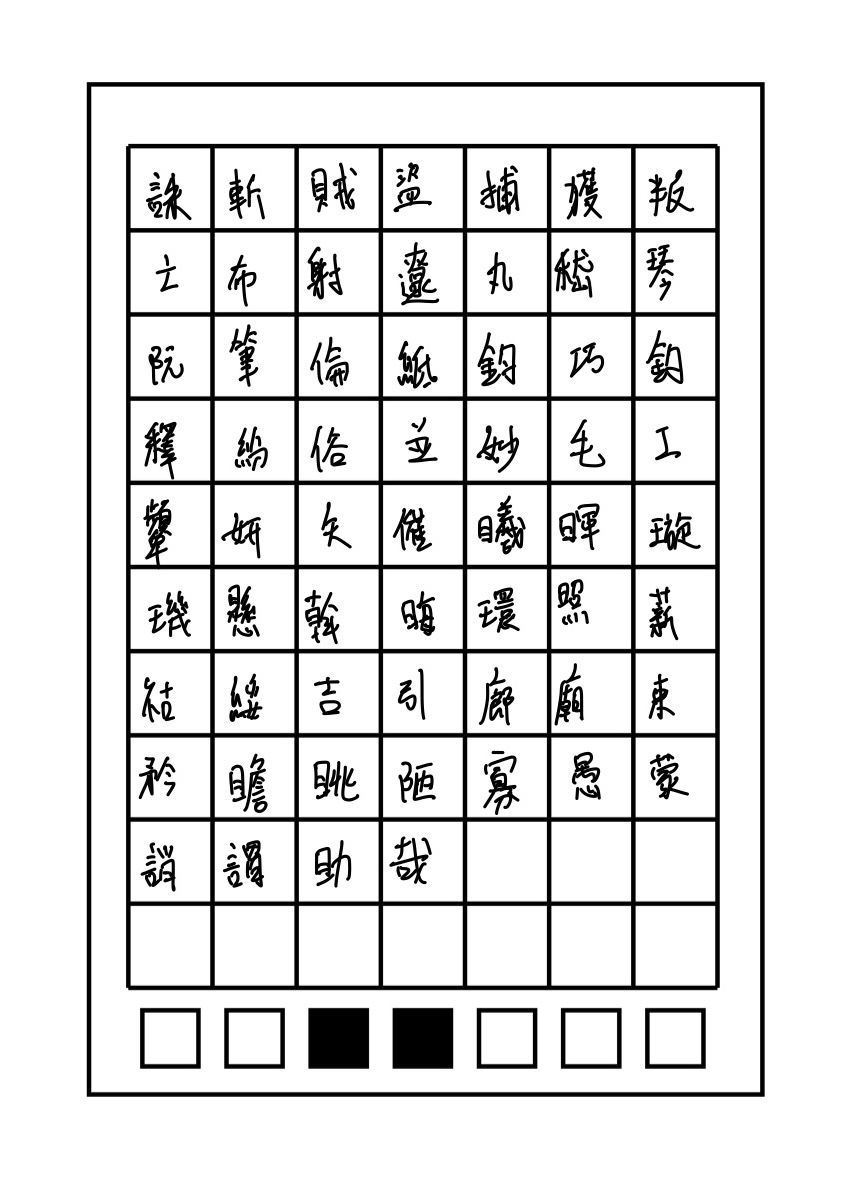 誅斬賊盜捕獲叛
亡布射遼丸嵇琴
阮筆倫紙鈞巧釣
釋紛俗並妙毛工
顰妍矢催曦暉璇
璣懸斡晦環照薪
祜綏吉引廊廟束
矜瞻眺陋寡愚蒙
誚謂助哉